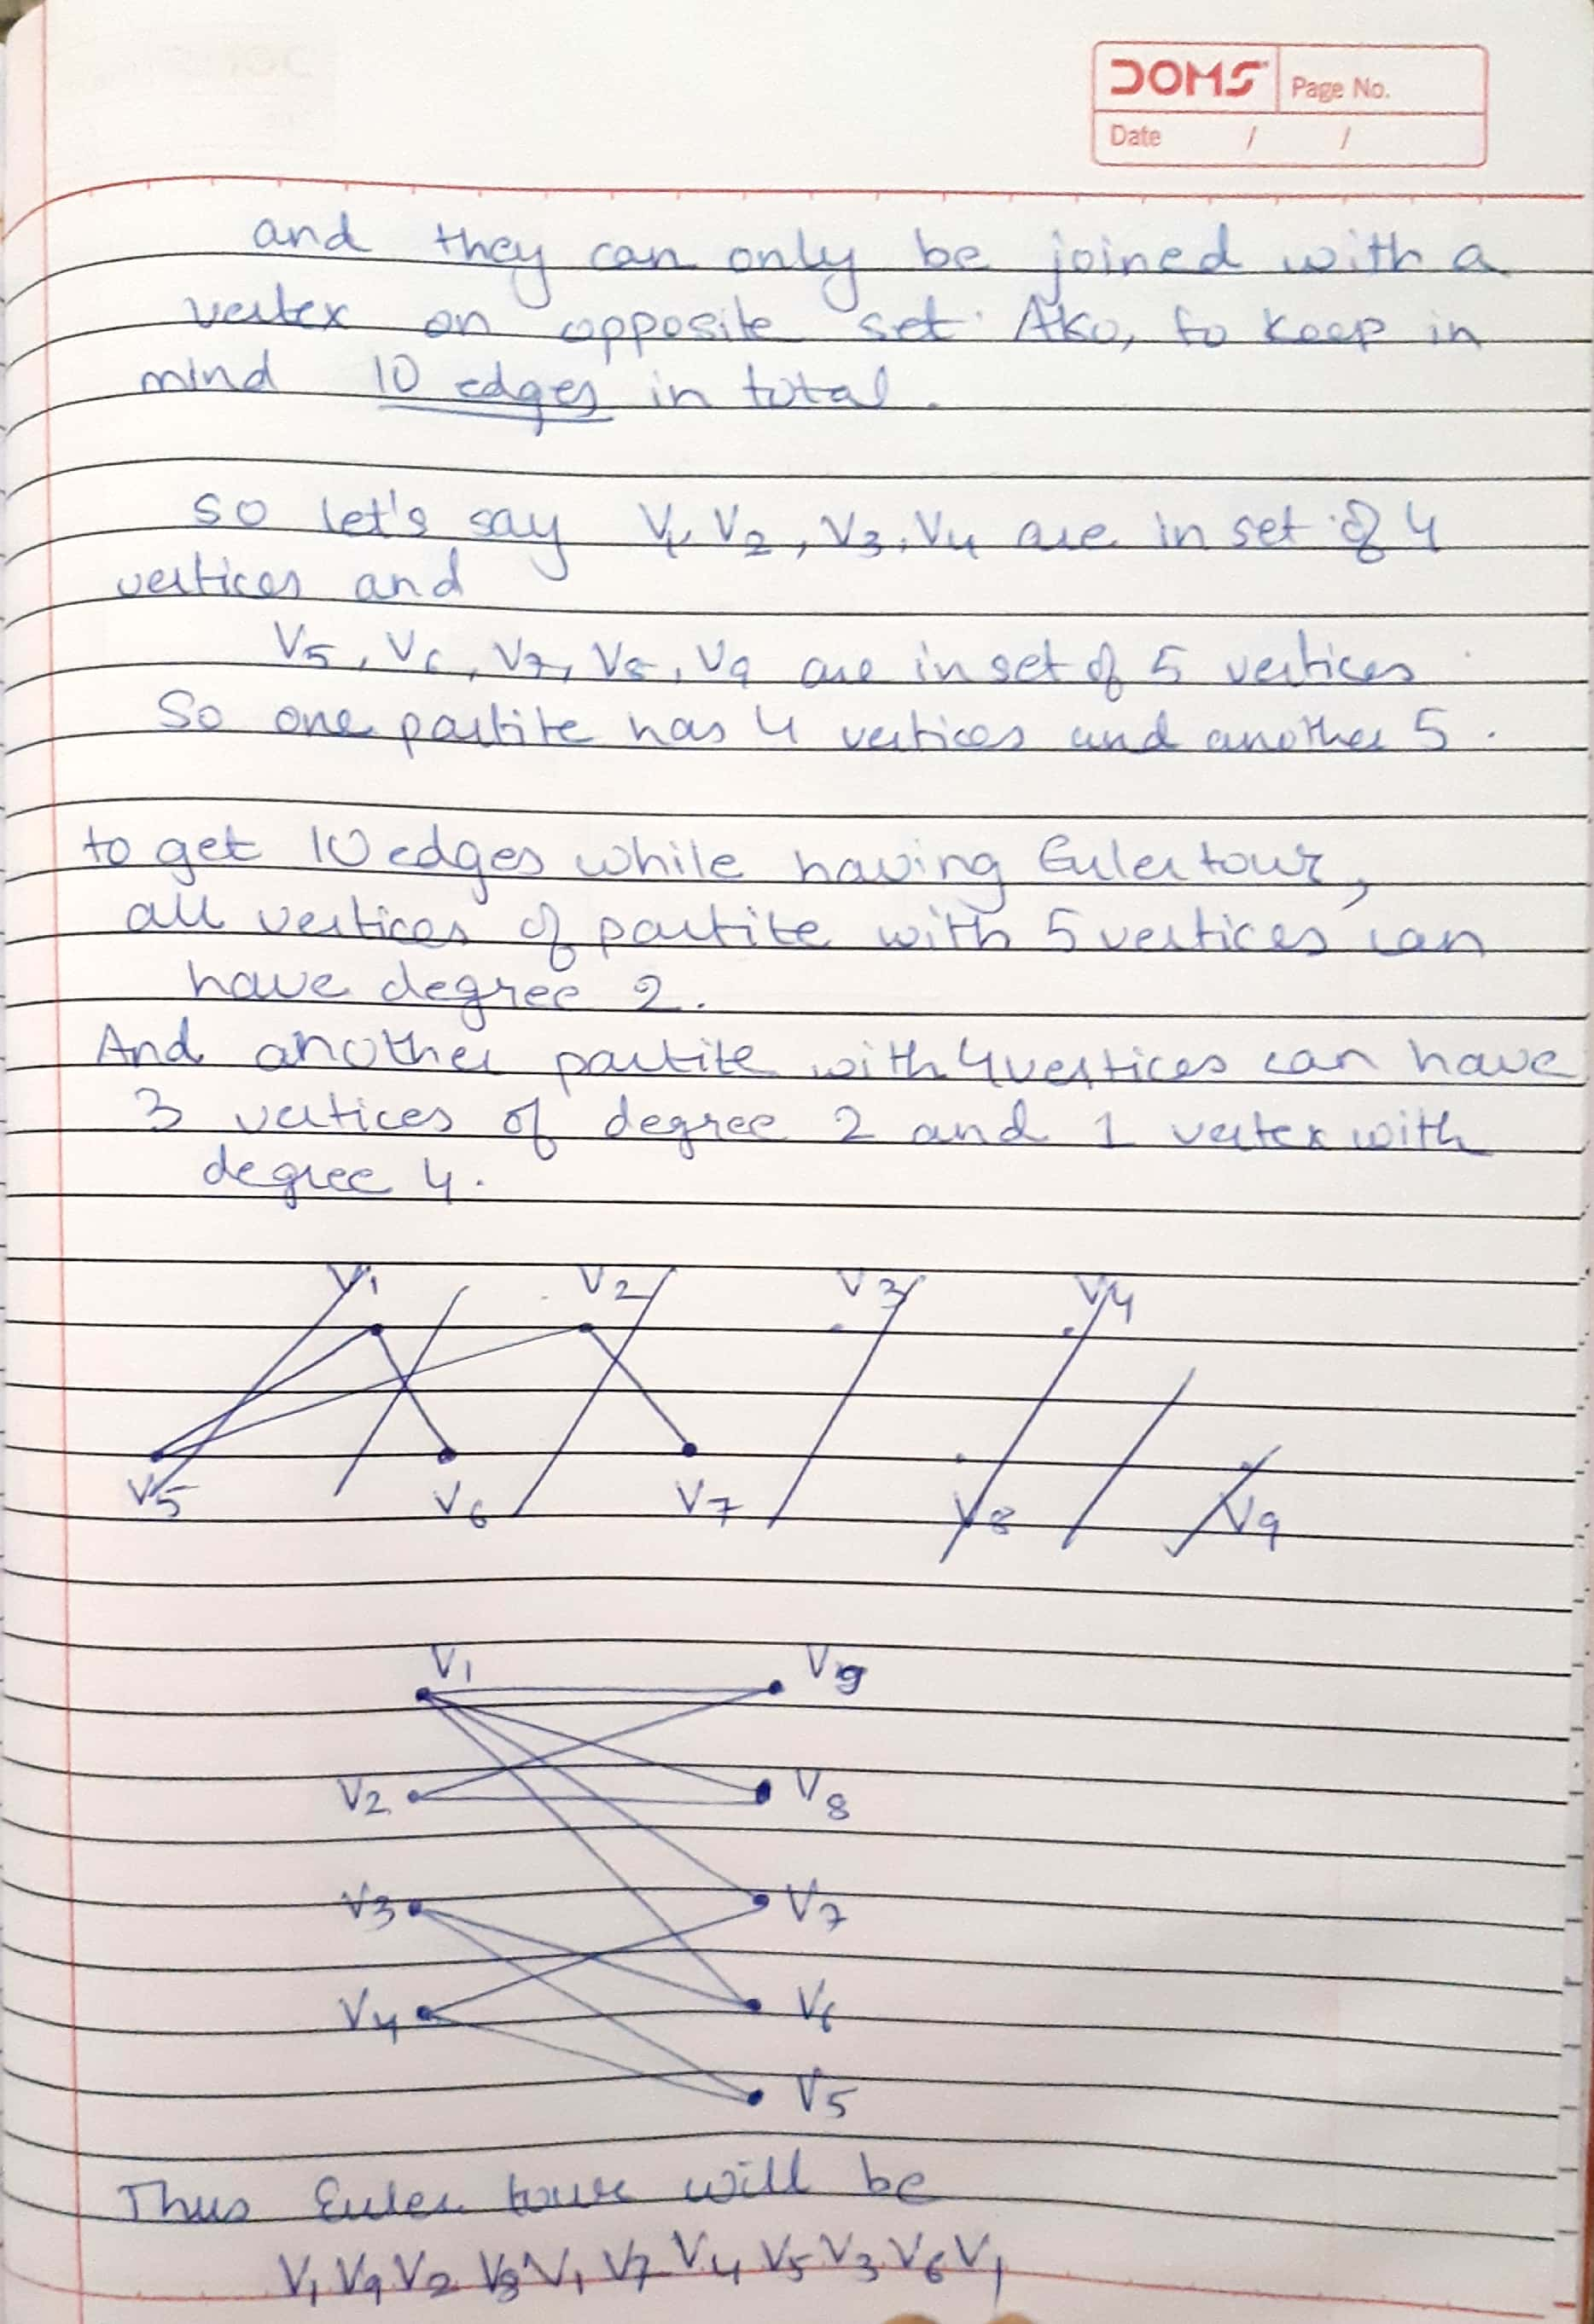 DOMS Page No.
Date / /
and they can only be joined with a
vertex on opposite set. Also, to keep in
mind 10 edges in total.
so let's say V1, V2, V3, V4 are in set of 4
vertices and
V5, V6, V7, V8, V9 are in set of 5 vertices
So one partite has 4 vertices and another 5.
to get 10 edges while having Euler tour,
all vertices of partite with 5 vertices can
have degree 2.
And another partite with 4 vertices can have
3 vertices of degree 2 and 1 vertex with
degree 4.
V1 V2 V3 V4
V5 V6 V7 V8 V9
V1 V9
V2 V8
V3 V7
V4 V6
V5
Thus Euler tour will be
V1 V9 V2 V8 V1 V7 V4 V5 V3 V6 V1